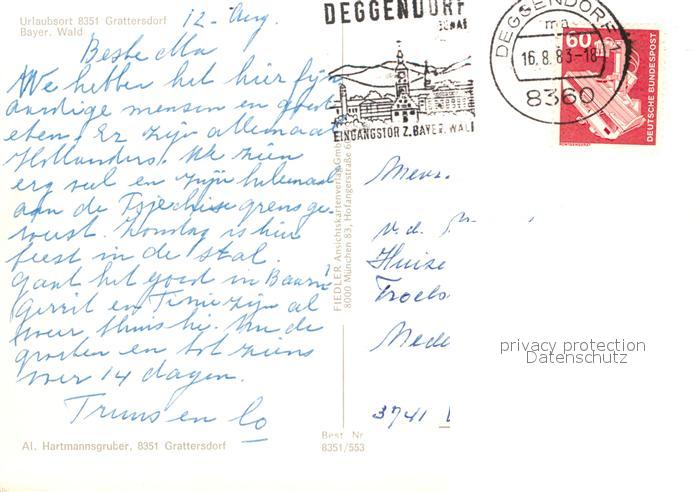 Urlaubsort 8351 Grattersdorf
Bayer. Wald
12-Aug.
Beste Ma
We hebben het hier fijn
aardige mensen en goed
eten. Er zijn allemaal
Hollanders. We zien
erg veel en zijn helemaal
aan de Tjechise grens ge-
weest. Zondag is hier
feest in de stal.
Gaat het goed in Baarn?
Gerrit en Tini zijn al
weer thuis hè. Nu de
groeten en tot ziens
over 14 dagen.
Truus en Co
Al. Hartmannsgruber, 8351 Grattersdorf
Best. Nr
8351/553
FIEDLER Ansichtskartenverlag GmbH
8000 München 83, Hofangerstraße
DEGGENDORF
DONAU
EINGANGSTOR Z. BAYER. WALD
DEGGENDORF 1
ma
16.8.83-18
8360
60
DEUTSCHE BUNDESPOST
Mevr.
v.d.
Huize
Froebe
Nede
3741
privacy protection
Datenschutz